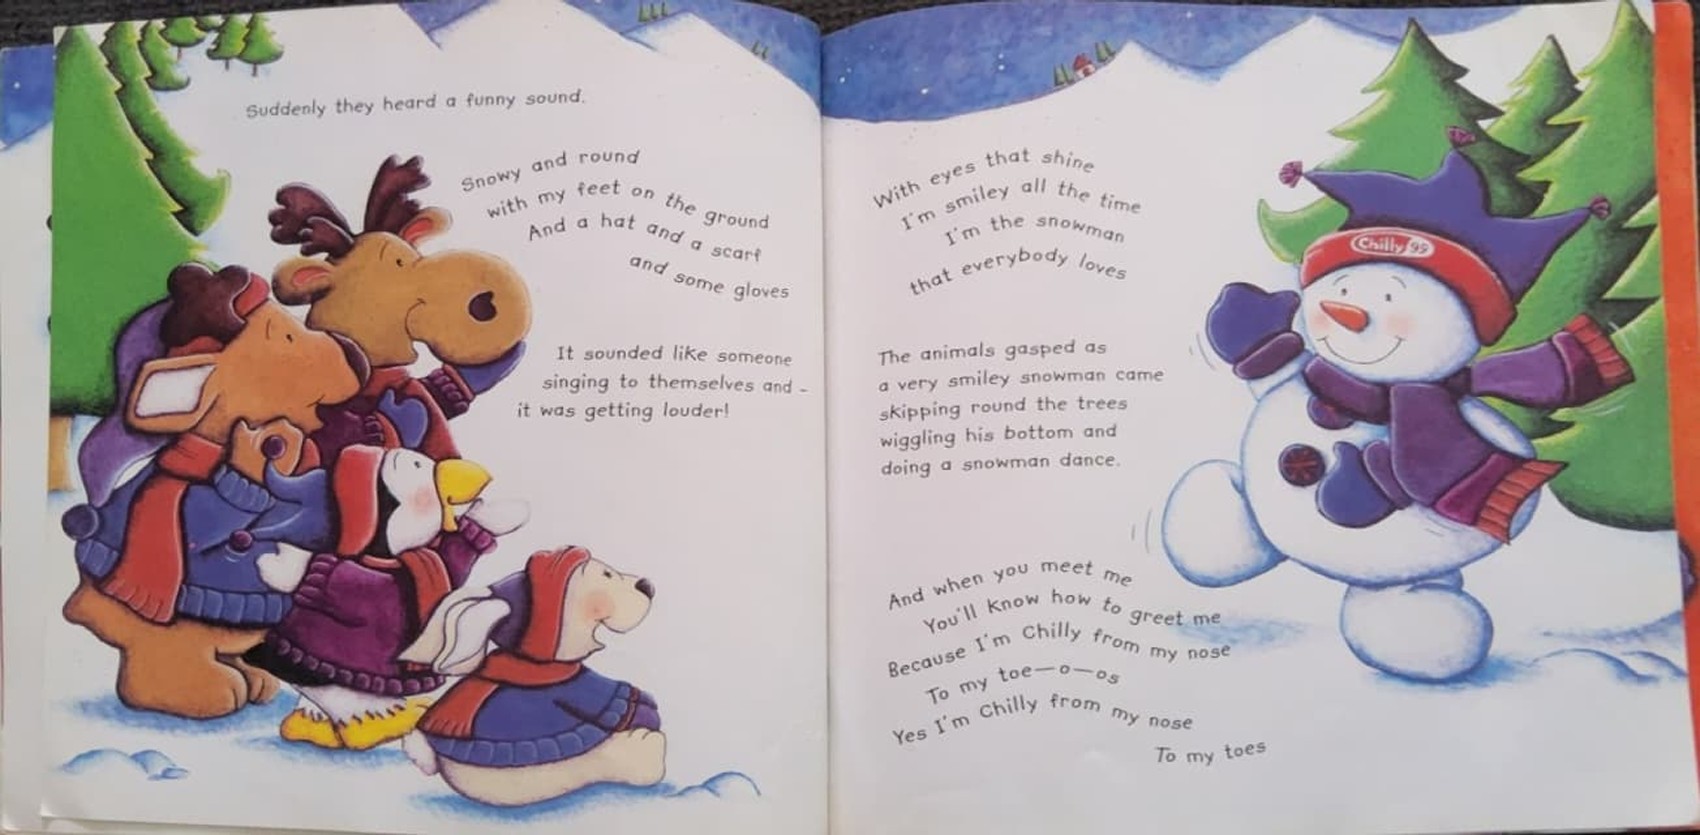 Suddenly they heard a funny sound.
Snowy and round
with my feet on the ground
And a hat and a scarf
and some gloves
It sounded like someone
singing to themselves and -
it was getting louder!
With eyes that shine
I'm smiley all the time
I'm the snowman
that everybody loves
Chilly 99
The animals gasped as
a very smiley snowman came
skipping round the trees
wiggling his bottom and
doing a snowman dance.
And when you meet me
You'll know how to greet me
Because I'm Chilly from my nose
To my toe—o—os
Yes I'm Chilly from my nose
To my toes